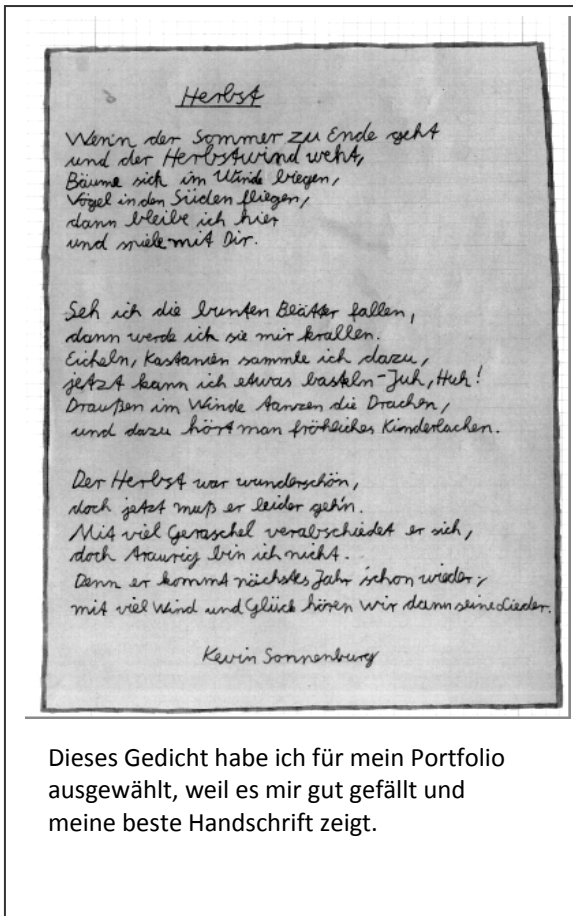 Herbst
Wenn der Sommer zu Ende geht
und der Herbstwind weht,
Bäume sich im Winde biegen,
Vögel in den Süden fliegen,
dann bleibe ich hier
und spiele mit Dir.
Seh ich die bunten Blätter fallen,
dann werde ich sie mir krallen.
Eicheln, Kastanien sammle ich dazu,
jetzt kann ich etwas basteln - Juh, Huh!
Draußen im Winde tanzen die Drachen,
und dazu hört man fröhliches Kinderlachen.
Der Herbst war wunderschön,
doch jetzt muß er leider gehn.
Mit viel Geraschel verabschiedet er sich,
doch traurig bin ich nicht.
Denn er kommt nächstes Jahr schon wieder,
mit viel Wind und Glück hören wir dann seine Lieder.
Kevin Sonnenburg
Dieses Gedicht habe ich für mein Portfolio
ausgewählt, weil es mir gut gefällt und
meine beste Handschrift zeigt.